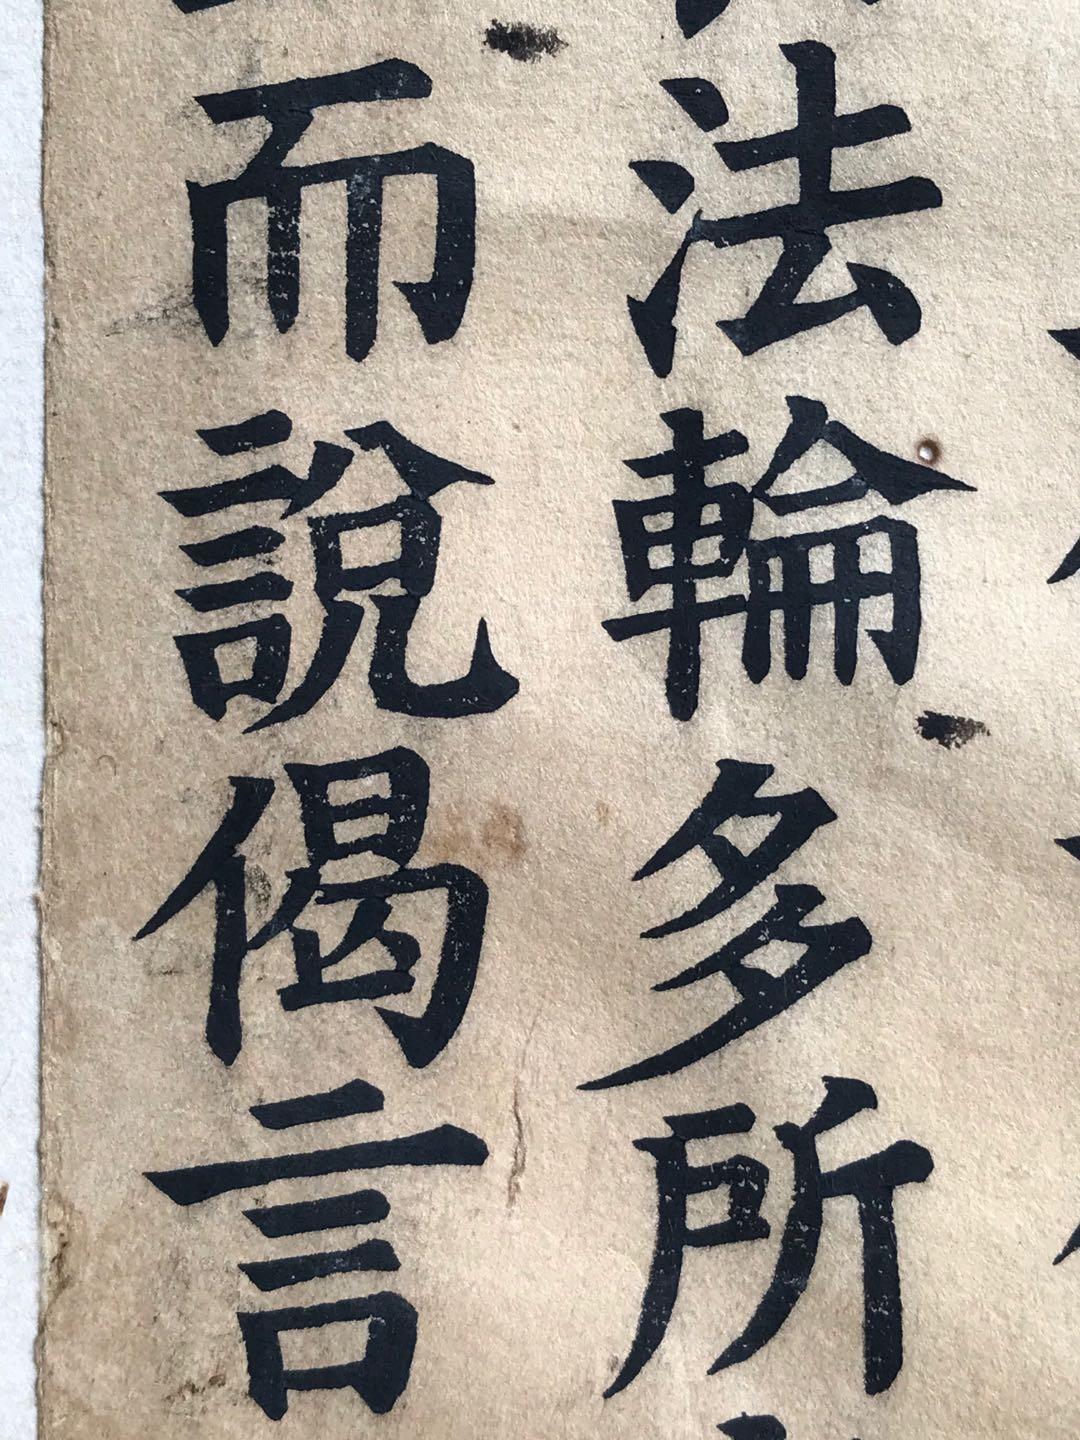 法輪多所
而說偈言